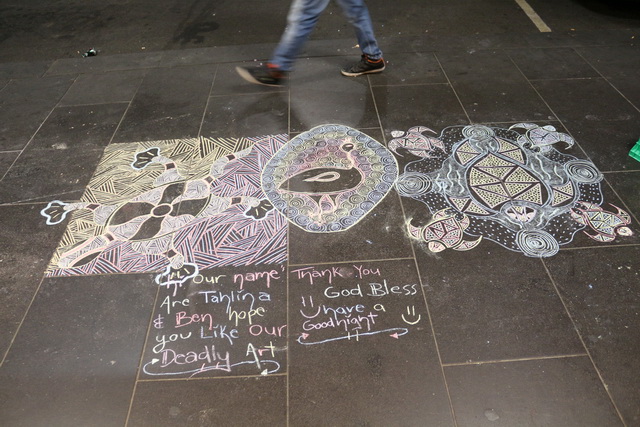 Our name's
Are Tahlina
& Ben, hope
you Like Our
Deadly Art
Thank You
God Bless
have a
Goodnight